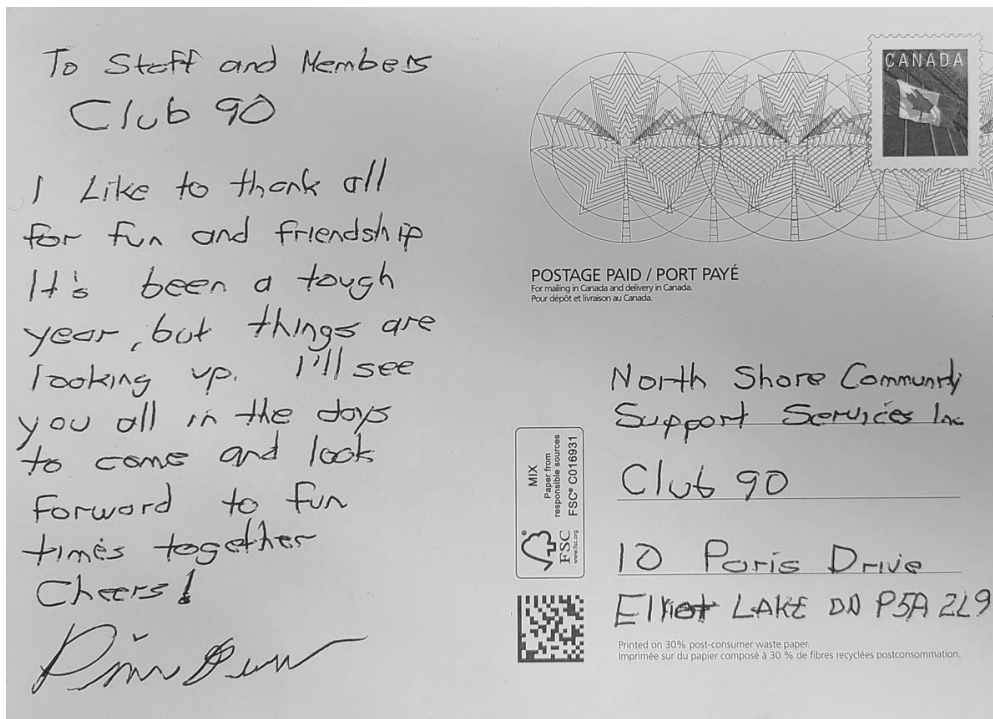 To Staff and Members
Club 90
I Like to thank all
for fun and friendship
It's been a tough
year, but things are
looking up. I'll see
you all in the days
to come and look
forward to fun
times together
Cheers!
CANADA
POSTAGE PAID / PORT PAYÉ
For mailing in Canada and delivery in Canada.
Pour dépôt et livraison au Canada.
North Shore Community
Support Services Inc
Club 90
10 Paris Drive
Elliot LAKE ON P5A 2L9
MIX
Paper from
responsible sources
FSC® C016931
FSC
www.fsc.org
Printed on 30% post-consumer waste paper.
Imprimée sur du papier composé à 30 % de fibres recyclées postconsommation.